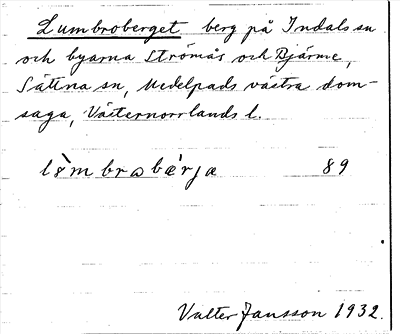 Lumbroberget berg på Indals sn
och byarna Strömås och Bjärme,
Sättna sn, Medelpads västra dom-
saga, Västernorrlands l.
89
Valter Jansson 1932.